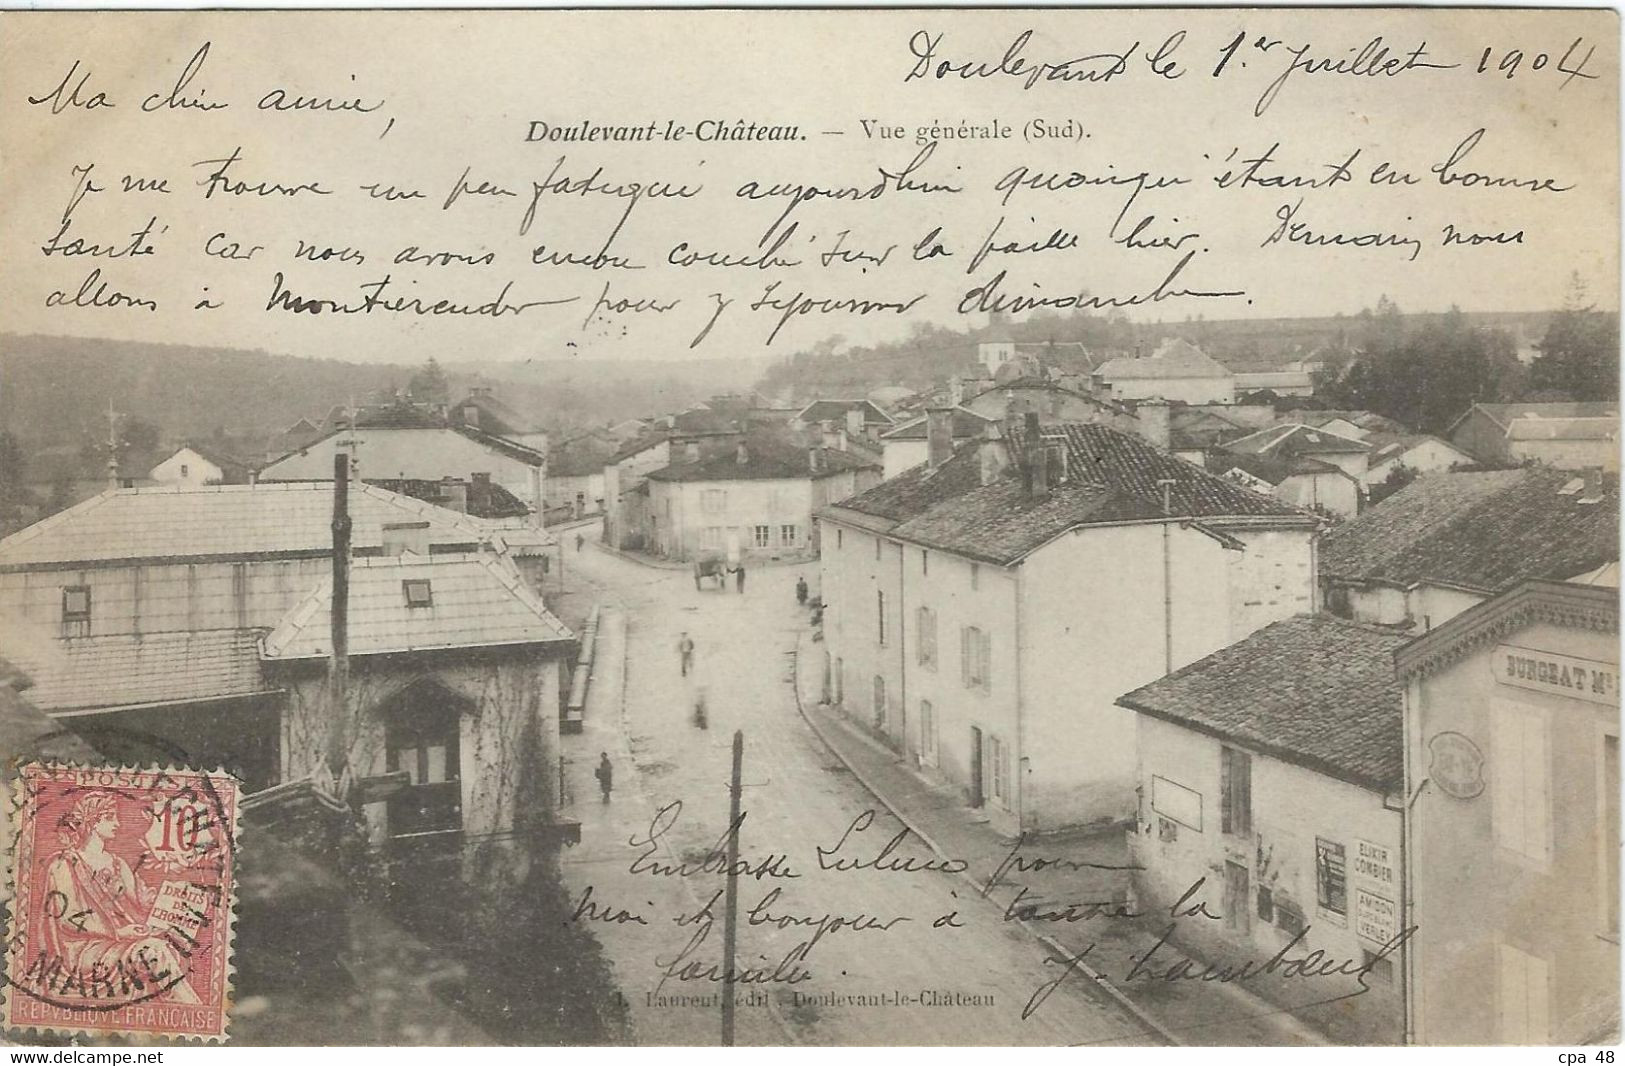 Doulevant le 1.er Juillet 1904
Ma chère amie,
Doulevant-le-Château. — Vue générale (Sud).
Je me trouve un peu fatigué aujourd'hui quoiqu'étant en bonne
santé car nous avons encore couché sur la paille hier. Demain nous
allons à Montierender pour y séjourner dimanche.
BURGEAT
POSTES
10
DROITS
DE
L'HOMME
04
MARNE
REPVBLIQUE FRANÇAISE
ELIXIR
COMBIER
AMIDON
VERLEY
Embrasse pour
moi et bonjour à toute la
famille.
J.
Laurent, édit., Doulevant-le-Château
cpa 48